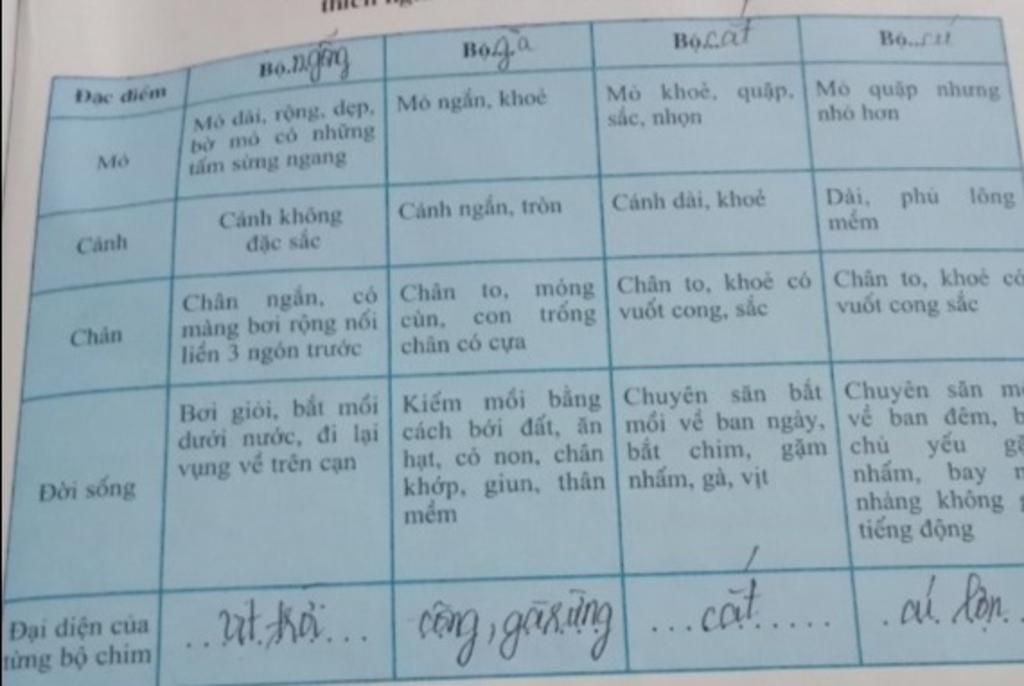 Đặc điểm
Bộ ngỗng
Bộ gà
Bộ cắt
Bộ cú
Mỏ
Mỏ dài, rộng, dẹp,
bờ mỏ có những
tấm sừng ngang
Mỏ ngắn, khoẻ
Mỏ khoẻ, quặp,
sắc, nhọn
Mỏ quặp nhưng
nhỏ hơn
Cánh
Cánh không
đặc sắc
Cánh ngắn, tròn
Cánh dài, khoẻ
Dài, phủ lông
mềm
Chân
Chân ngắn, có
màng bơi rộng nối
liền 3 ngón trước
Chân to, móng
cùn, con trống
chân có cựa
Chân to, khoẻ có
vuốt cong, sắc
Chân to, khoẻ có
vuốt cong sắc
Đời sống
Bơi giỏi, bắt mồi
dưới nước, đi lại
vụng về trên cạn
Kiếm mồi bằng
cách bới đất, ăn
hạt, cỏ non, chân
khớp, giun, thân
mềm
Chuyên săn bắt
mồi về ban ngày,
bắt chim, gặm
nhấm, gà, vịt
Chuyên săn
về ban đêm,
chủ yếu
nhấm, bay
nhàng không
tiếng động
Đại diện của
từng bộ chim
vịt trời
công, gà rừng
cắt
cú lợn